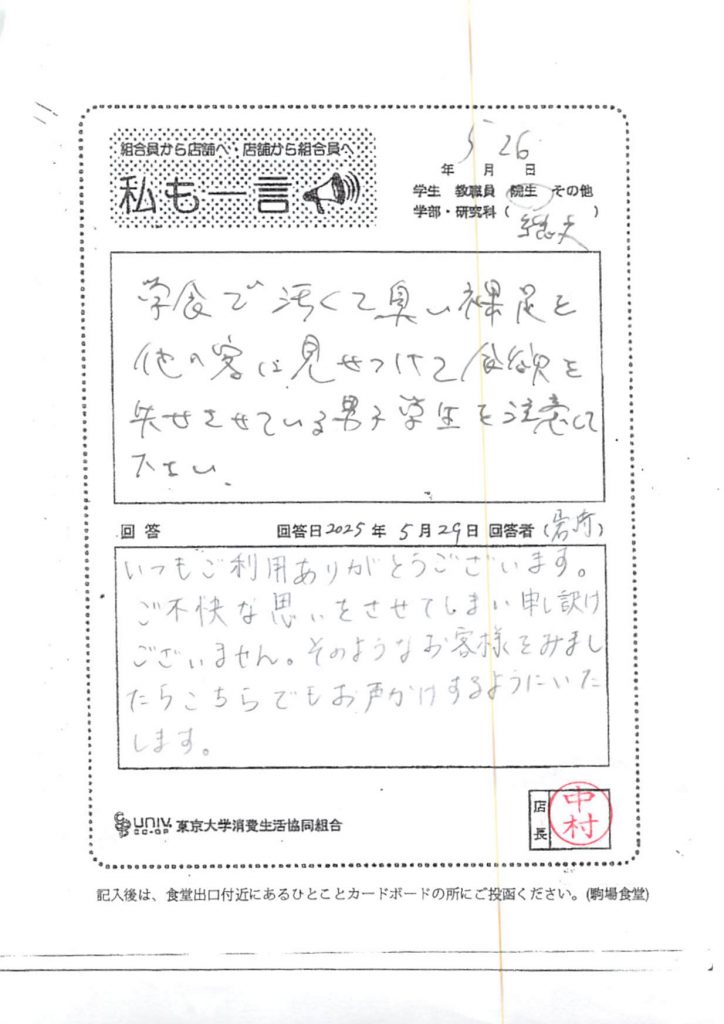 組合員から店舗へ・店舗から組合員へ
私も一言
5 26
年 月 日
学生 教職員 院生 その他
学部・研究科( 総文 )
学食で汚くて臭い裸足を
他の客に見せつけて食欲を
失せさせている男子学生を注意して
下さい.
回答 回答日2025年 5月29日 回答者( )
いつもご利用ありがとうございます。
ご不快な思いをさせてしまい申し訳け
ございません。そのようなお客様をみまし
たらこちらでもお声かけするようにいた
します。
UNIV. CO-OP 東京大学消費生活協同組合
店長 中村
記入後は、食堂出口付近にあるひとことカードボードの所にご投函ください。(駒場食堂)